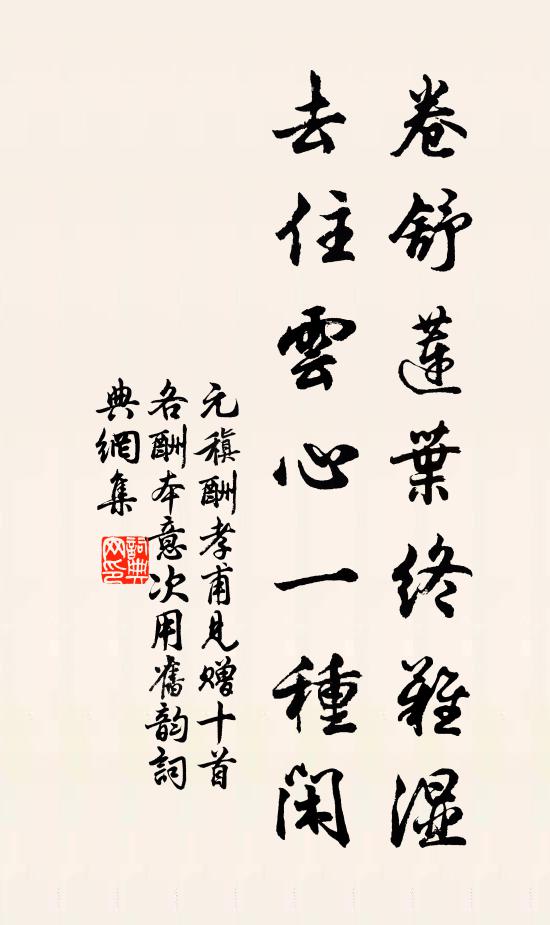 卷舒蓮葉終難濕
去住雲心一種閑
元稹酬孝甫見贈十首
各酬本意次用舊韵詞
典網集
詞典網印